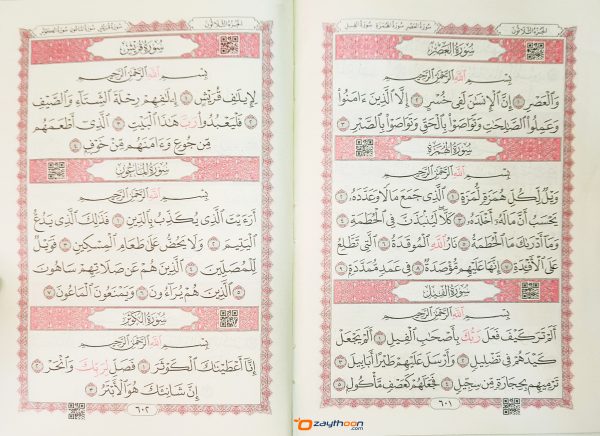 سُورَةُ العَصْرِ سُورَةُ الهُمَزَةِ سُورَةُ الفِيلِ
الجُزْءُ الثَّلَاثُونَ
سُورَةُ العَصْرِ
بِسْمِ اللَّهِ الرَّحْمَٰنِ الرَّحِيمِ
وَالْعَصْرِ ۝١ إِنَّ الْإِنسَانَ لَفِي خُسْرٍ ۝٢ إِلَّا الَّذِينَ ءَامَنُوا
وَعَمِلُوا الصَّالِحَاتِ وَتَوَاصَوْا بِالْحَقِّ وَتَوَاصَوْا بِالصَّبْرِ ۝٣
سُورَةُ الهُمَزَةِ
بِسْمِ اللَّهِ الرَّحْمَٰنِ الرَّحِيمِ
وَيْلٌ لِّكُلِّ هُمَزَةٍ لُّمَزَةٍ ۝١ الَّذِي جَمَعَ مَالًا وَعَدَّدَهُ ۝٢
يَحْسَبُ أَنَّ مَالَهُ أَخْلَدَهُ ۝٣ كَلَّا لَيُنبَذَنَّ فِي الْحُطَمَةِ ۝٤
وَمَا أَدْرَاكَ مَا الْحُطَمَةُ ۝٥ نَارُ اللَّهِ الْمُوقَدَةُ ۝٦ الَّتِي تَطَّلِعُ
عَلَى الْأَفْئِدَةِ ۝٧ إِنَّهَا عَلَيْهِم مُّؤْصَدَةٌ ۝٨ فِي عَمَدٍ مُّمَدَّدَةٍ ۝٩
سُورَةُ الفِيلِ
بِسْمِ اللَّهِ الرَّحْمَٰنِ الرَّحِيمِ
أَلَمْ تَرَ كَيْفَ فَعَلَ رَبُّكَ بِأَصْحَابِ الْفِيلِ ۝١ أَلَمْ يَجْعَلْ
كَيْدَهُمْ فِي تَضْلِيلٍ ۝٢ وَأَرْسَلَ عَلَيْهِمْ طَيْرًا أَبَابِيلَ ۝٣
تَرْمِيهِم بِحِجَارَةٍ مِّن سِجِّيلٍ ۝٤ فَجَعَلَهُمْ كَعَصْفٍ مَّأْكُولٍ ۝٥
٦٠١
الجُزْءُ الثَّلَاثُونَ
سُورَةُ قُرَيْشٍ سُورَةُ المَاعُونِ سُورَةُ الكَوْثَرِ
سُورَةُ قُرَيْشٍ
بِسْمِ اللَّهِ الرَّحْمَٰنِ الرَّحِيمِ
لِإِيلَٰفِ قُرَيْشٍ ۝١ إِۦلَٰفِهِمْ رِحْلَةَ الشِّتَاءِ وَالصَّيْفِ
۝٢ فَلْيَعْبُدُوا رَبَّ هَٰذَا الْبَيْتِ ۝٣ الَّذِي أَطْعَمَهُم
مِّن جُوعٍ وَءَامَنَهُم مِّنْ خَوْفٍ ۝٤
سُورَةُ المَاعُونِ
بِسْمِ اللَّهِ الرَّحْمَٰنِ الرَّحِيمِ
أَرَءَيْتَ الَّذِي يُكَذِّبُ بِالدِّينِ ۝١ فَذَٰلِكَ الَّذِي يَدُعُّ
الْيَتِيمَ ۝٢ وَلَا يَحُضُّ عَلَىٰ طَعَامِ الْمِسْكِينِ ۝٣ فَوَيْلٌ
لِّلْمُصَلِّينَ ۝٤ الَّذِينَ هُمْ عَن صَلَاتِهِمْ سَاهُونَ
۝٥ الَّذِينَ هُمْ يُرَاءُونَ ۝٦ وَيَمْنَعُونَ الْمَاعُونَ ۝٧
سُورَةُ الكَوْثَرِ
بِسْمِ اللَّهِ الرَّحْمَٰنِ الرَّحِيمِ
إِنَّا أَعْطَيْنَٰكَ الْكَوْثَرَ ۝١ فَصَلِّ لِرَبِّكَ وَانْحَرْ ۝٢
إِنَّ شَانِئَكَ هُوَ الْأَبْتَرُ ۝٣
٦٠٢
zaythoon.com